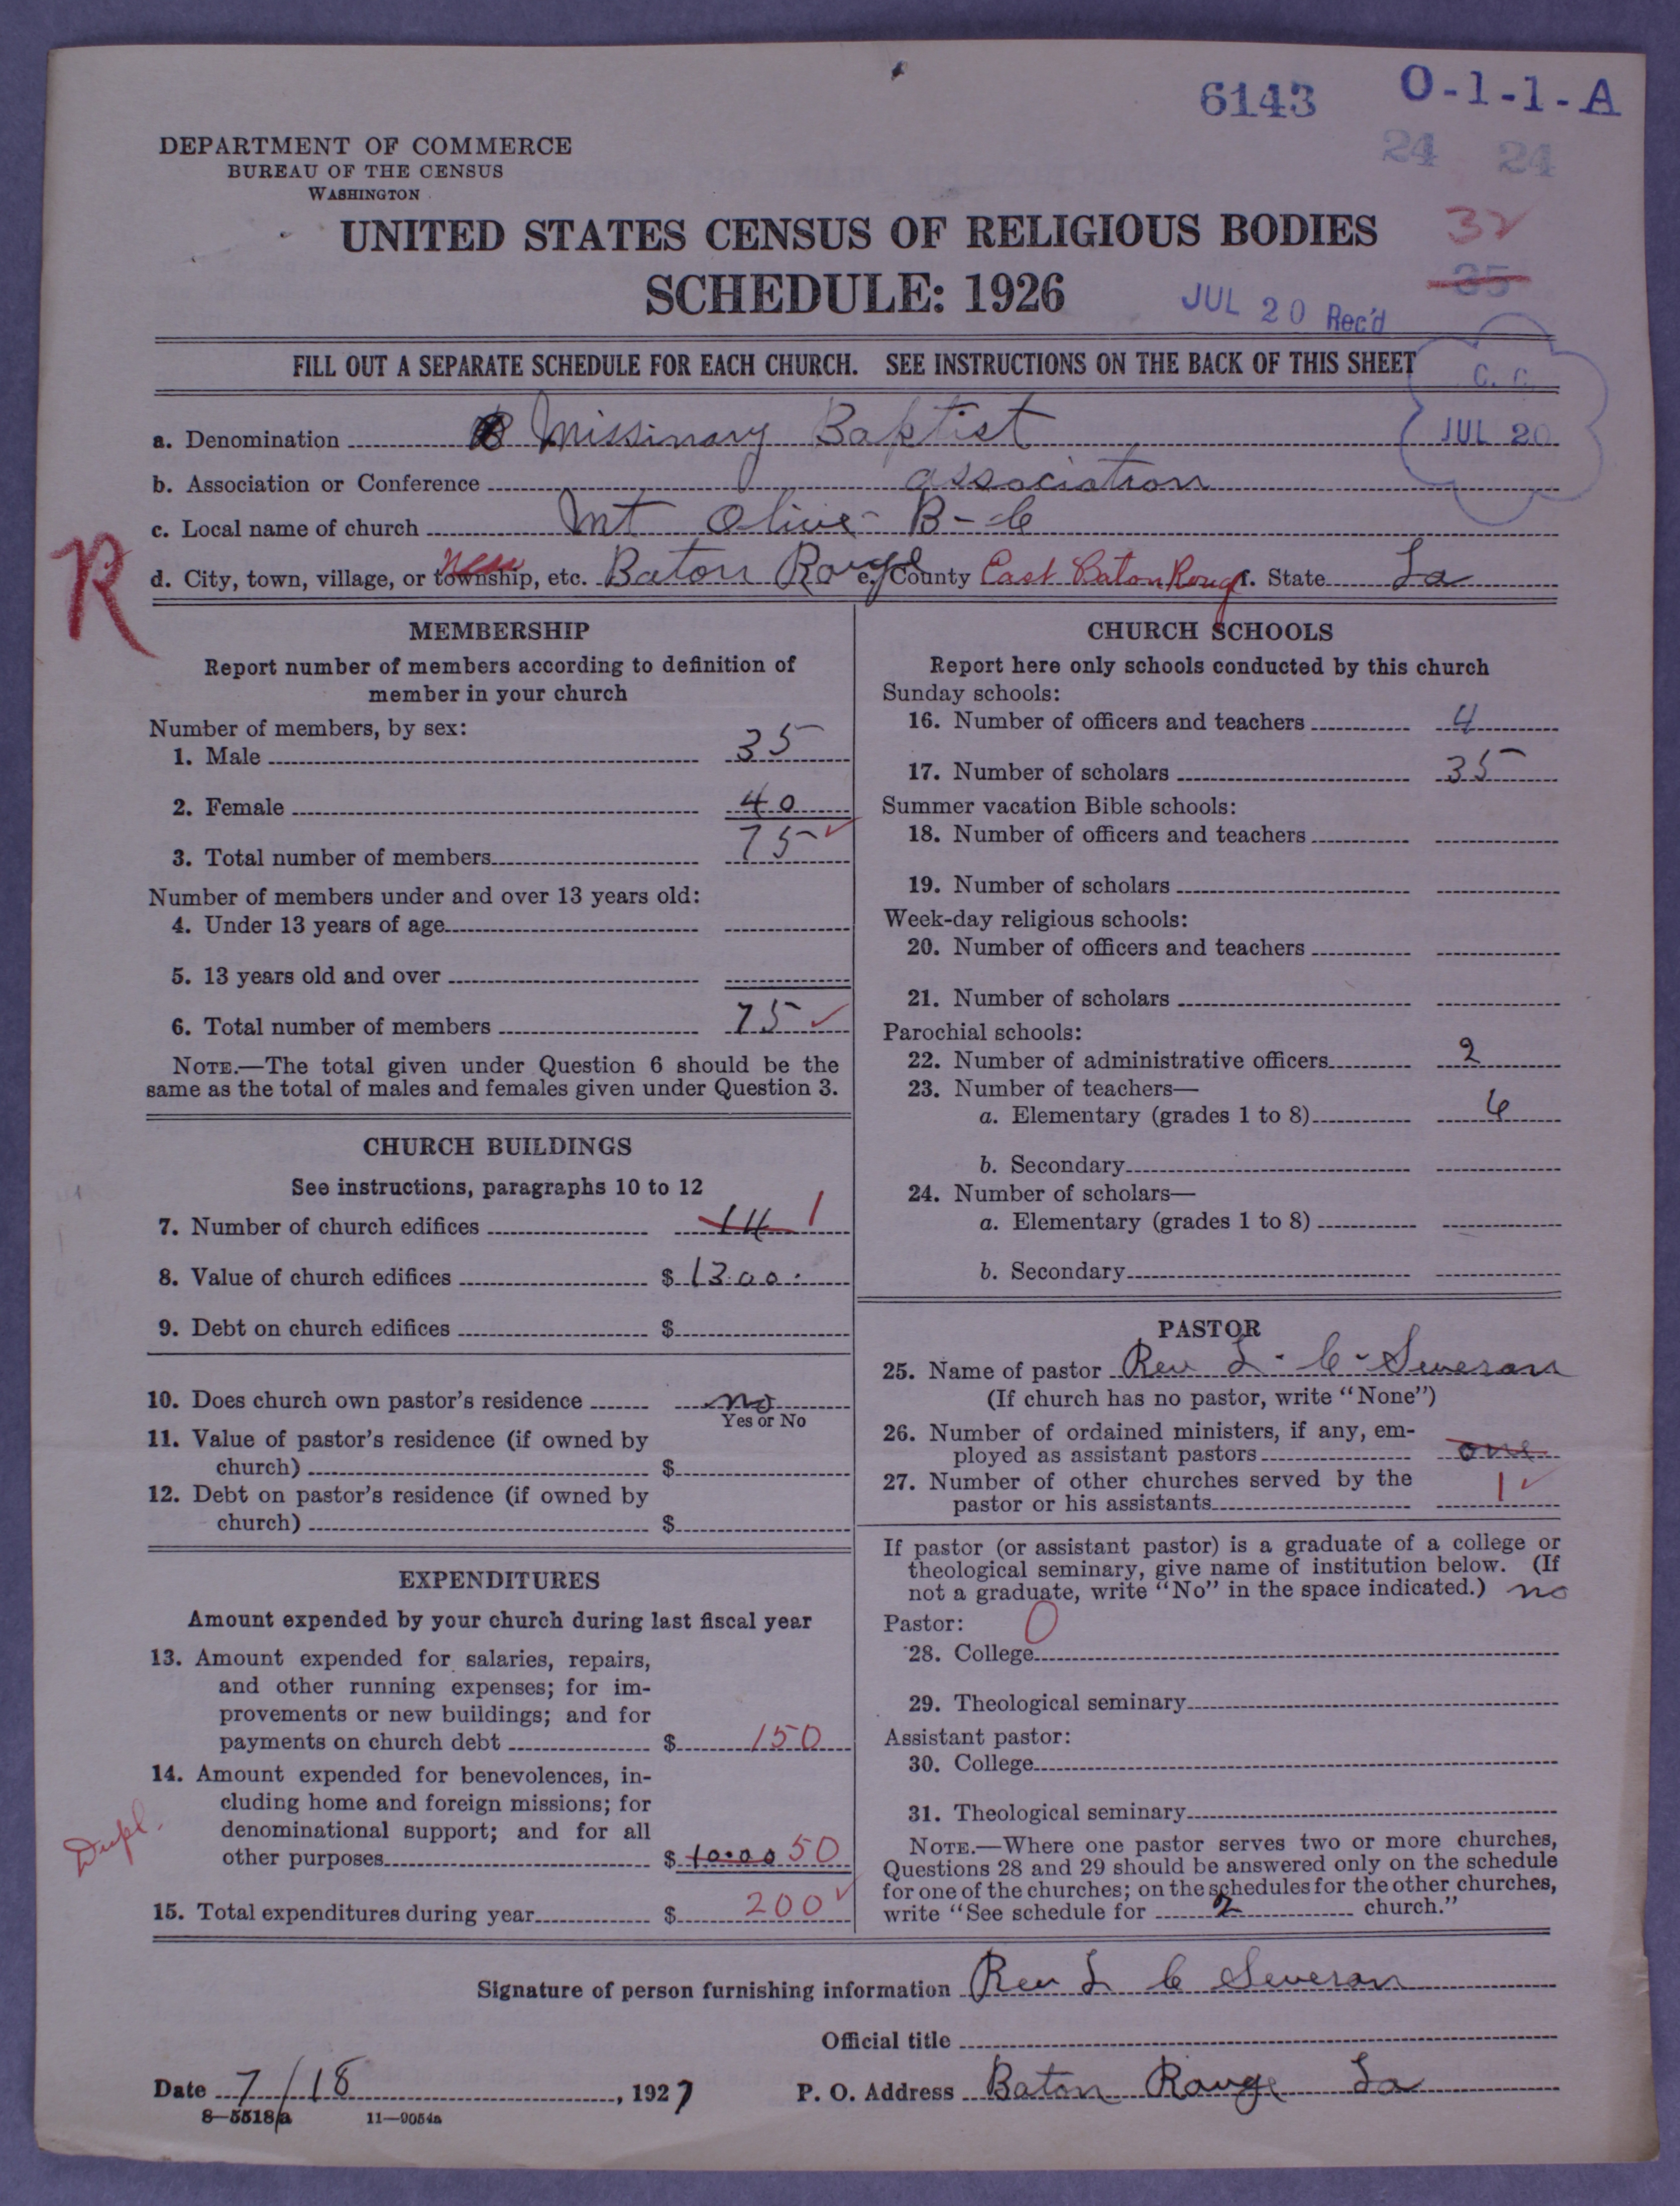 6143 O-1-1-A
24 24
DEPARTMENT OF COMMERCE
BUREAU OF THE CENSUS
WASHINGTON
UNITED STATES CENSUS OF RELIGIOUS BODIES
32
SCHEDULE: 1926
35
JUL 20 Rec'd
FILL OUT A SEPARATE SCHEDULE FOR EACH CHURCH. SEE INSTRUCTIONS ON THE BACK OF THIS SHEET
C. C.
JUL 20
a. Denomination Missinary Baptist
b. Association or Conference association
c. Local name of church Mt Olive - B - C
R
new
d. City, town, village, or township, etc. Baton Rouge e. County East Baton Rouge f. State La
MEMBERSHIP
Report number of members according to definition of
member in your church
Number of members, by sex:
1. Male 35
2. Female 40
3. Total number of members 75
Number of members under and over 13 years old:
4. Under 13 years of age
5. 13 years old and over
6. Total number of members 75
NOTE.—The total given under Question 6 should be the
same as the total of males and females given under Question 3.
CHURCH BUILDINGS
See instructions, paragraphs 10 to 12
7. Number of church edifices 14 1
8. Value of church edifices $ 1300.
9. Debt on church edifices $
10. Does church own pastor's residence no
Yes or No
11. Value of pastor's residence (if owned by
church) $
12. Debt on pastor's residence (if owned by
church) $
EXPENDITURES
Amount expended by your church during last fiscal year
13. Amount expended for salaries, repairs,
and other running expenses; for im-
provements or new buildings; and for
payments on church debt $ 150
14. Amount expended for benevolences, in-
cluding home and foreign missions; for
denominational support; and for all
other purposes $ 10.00 50
Dupl.
15. Total expenditures during year $ 200
CHURCH SCHOOLS
Report here only schools conducted by this church
Sunday schools:
16. Number of officers and teachers 4
17. Number of scholars 35
Summer vacation Bible schools:
18. Number of officers and teachers
19. Number of scholars
Week-day religious schools:
20. Number of officers and teachers
21. Number of scholars
Parochial schools:
22. Number of administrative officers 2
23. Number of teachers—
a. Elementary (grades 1 to 8) 6
b. Secondary
24. Number of scholars—
a. Elementary (grades 1 to 8)
b. Secondary
PASTOR
25. Name of pastor Rev L. C. Severan
(If church has no pastor, write "None")
26. Number of ordained ministers, if any, em-
ployed as assistant pastors one
27. Number of other churches served by the
pastor or his assistants 1
If pastor (or assistant pastor) is a graduate of a college or
theological seminary, give name of institution below. (If
not a graduate, write "No" in the space indicated.) no
Pastor: 0
28. College
29. Theological seminary
Assistant pastor:
30. College
31. Theological seminary
NOTE.—Where one pastor serves two or more churches,
Questions 28 and 29 should be answered only on the schedule
for one of the churches; on the schedules for the other churches,
write "See schedule for 2 church."
Signature of person furnishing information Rev L C Severan
Official title
Date 7/18, 1927 P. O. Address Baton Rouge La
8—5518a 11—9054a